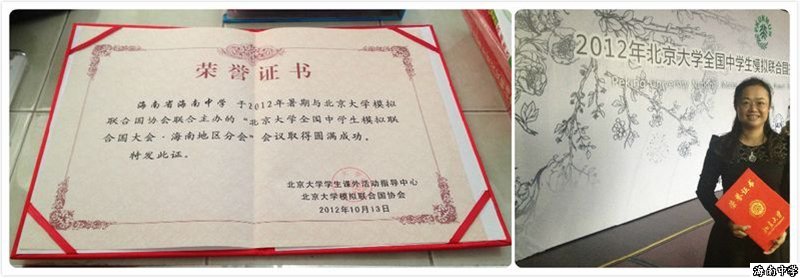 荣誉证书
海南省海南中学 于2012年暑期与北京大学模拟
联合国协会联合主办的“北京大学全国中学生模拟联
合国大会·海南地区分会”会议取得圆满成功。
特发此证。
北京大学学生课外活动指导中心
北京大学模拟联合国协会
2012年10月13日
2012年北京大学全国中学生模拟联合国
Peking University National
荣誉证书
北京大学
海南中学